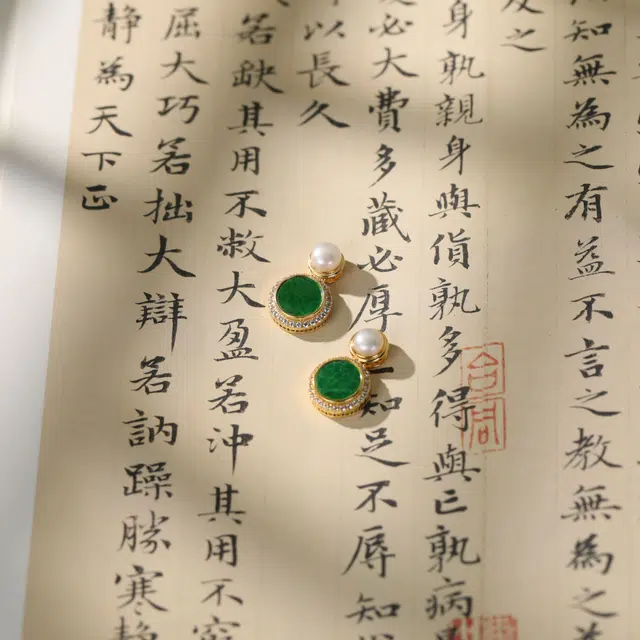 知無為之有益不言之教無為之
及之
身孰親身與貨孰多得與亡孰病
必大費多藏必厚知足不辱知
以長久
若缺其用不敝大盈若沖其用不
屈大巧若拙大辯若訥躁勝寒靜
靜為天下正